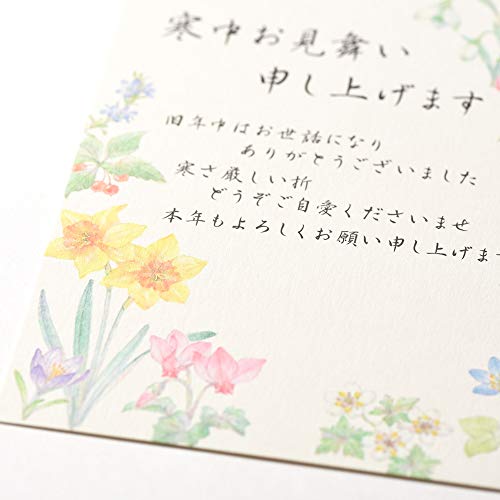 寒中お見舞い
申し上げます
旧年中はお世話になり
ありがとうございました
寒さ厳しい折
どうぞご自愛くださいませ
本年もよろしくお願い申し上げます